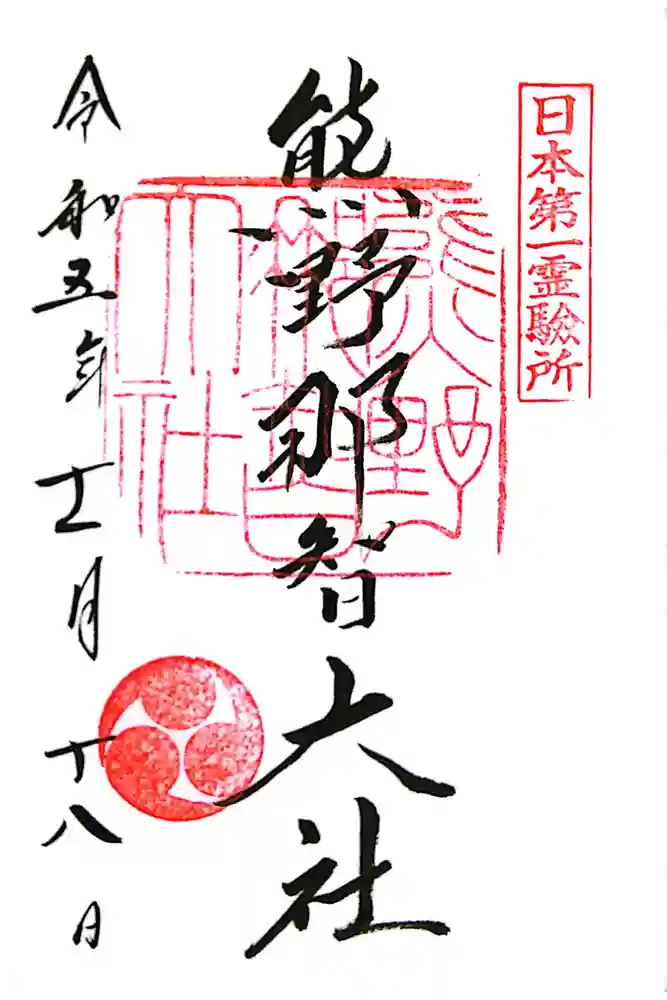 日本第一霊驗所
熊野那智大社
熊野
那智
大社
令和五年十一月十八日